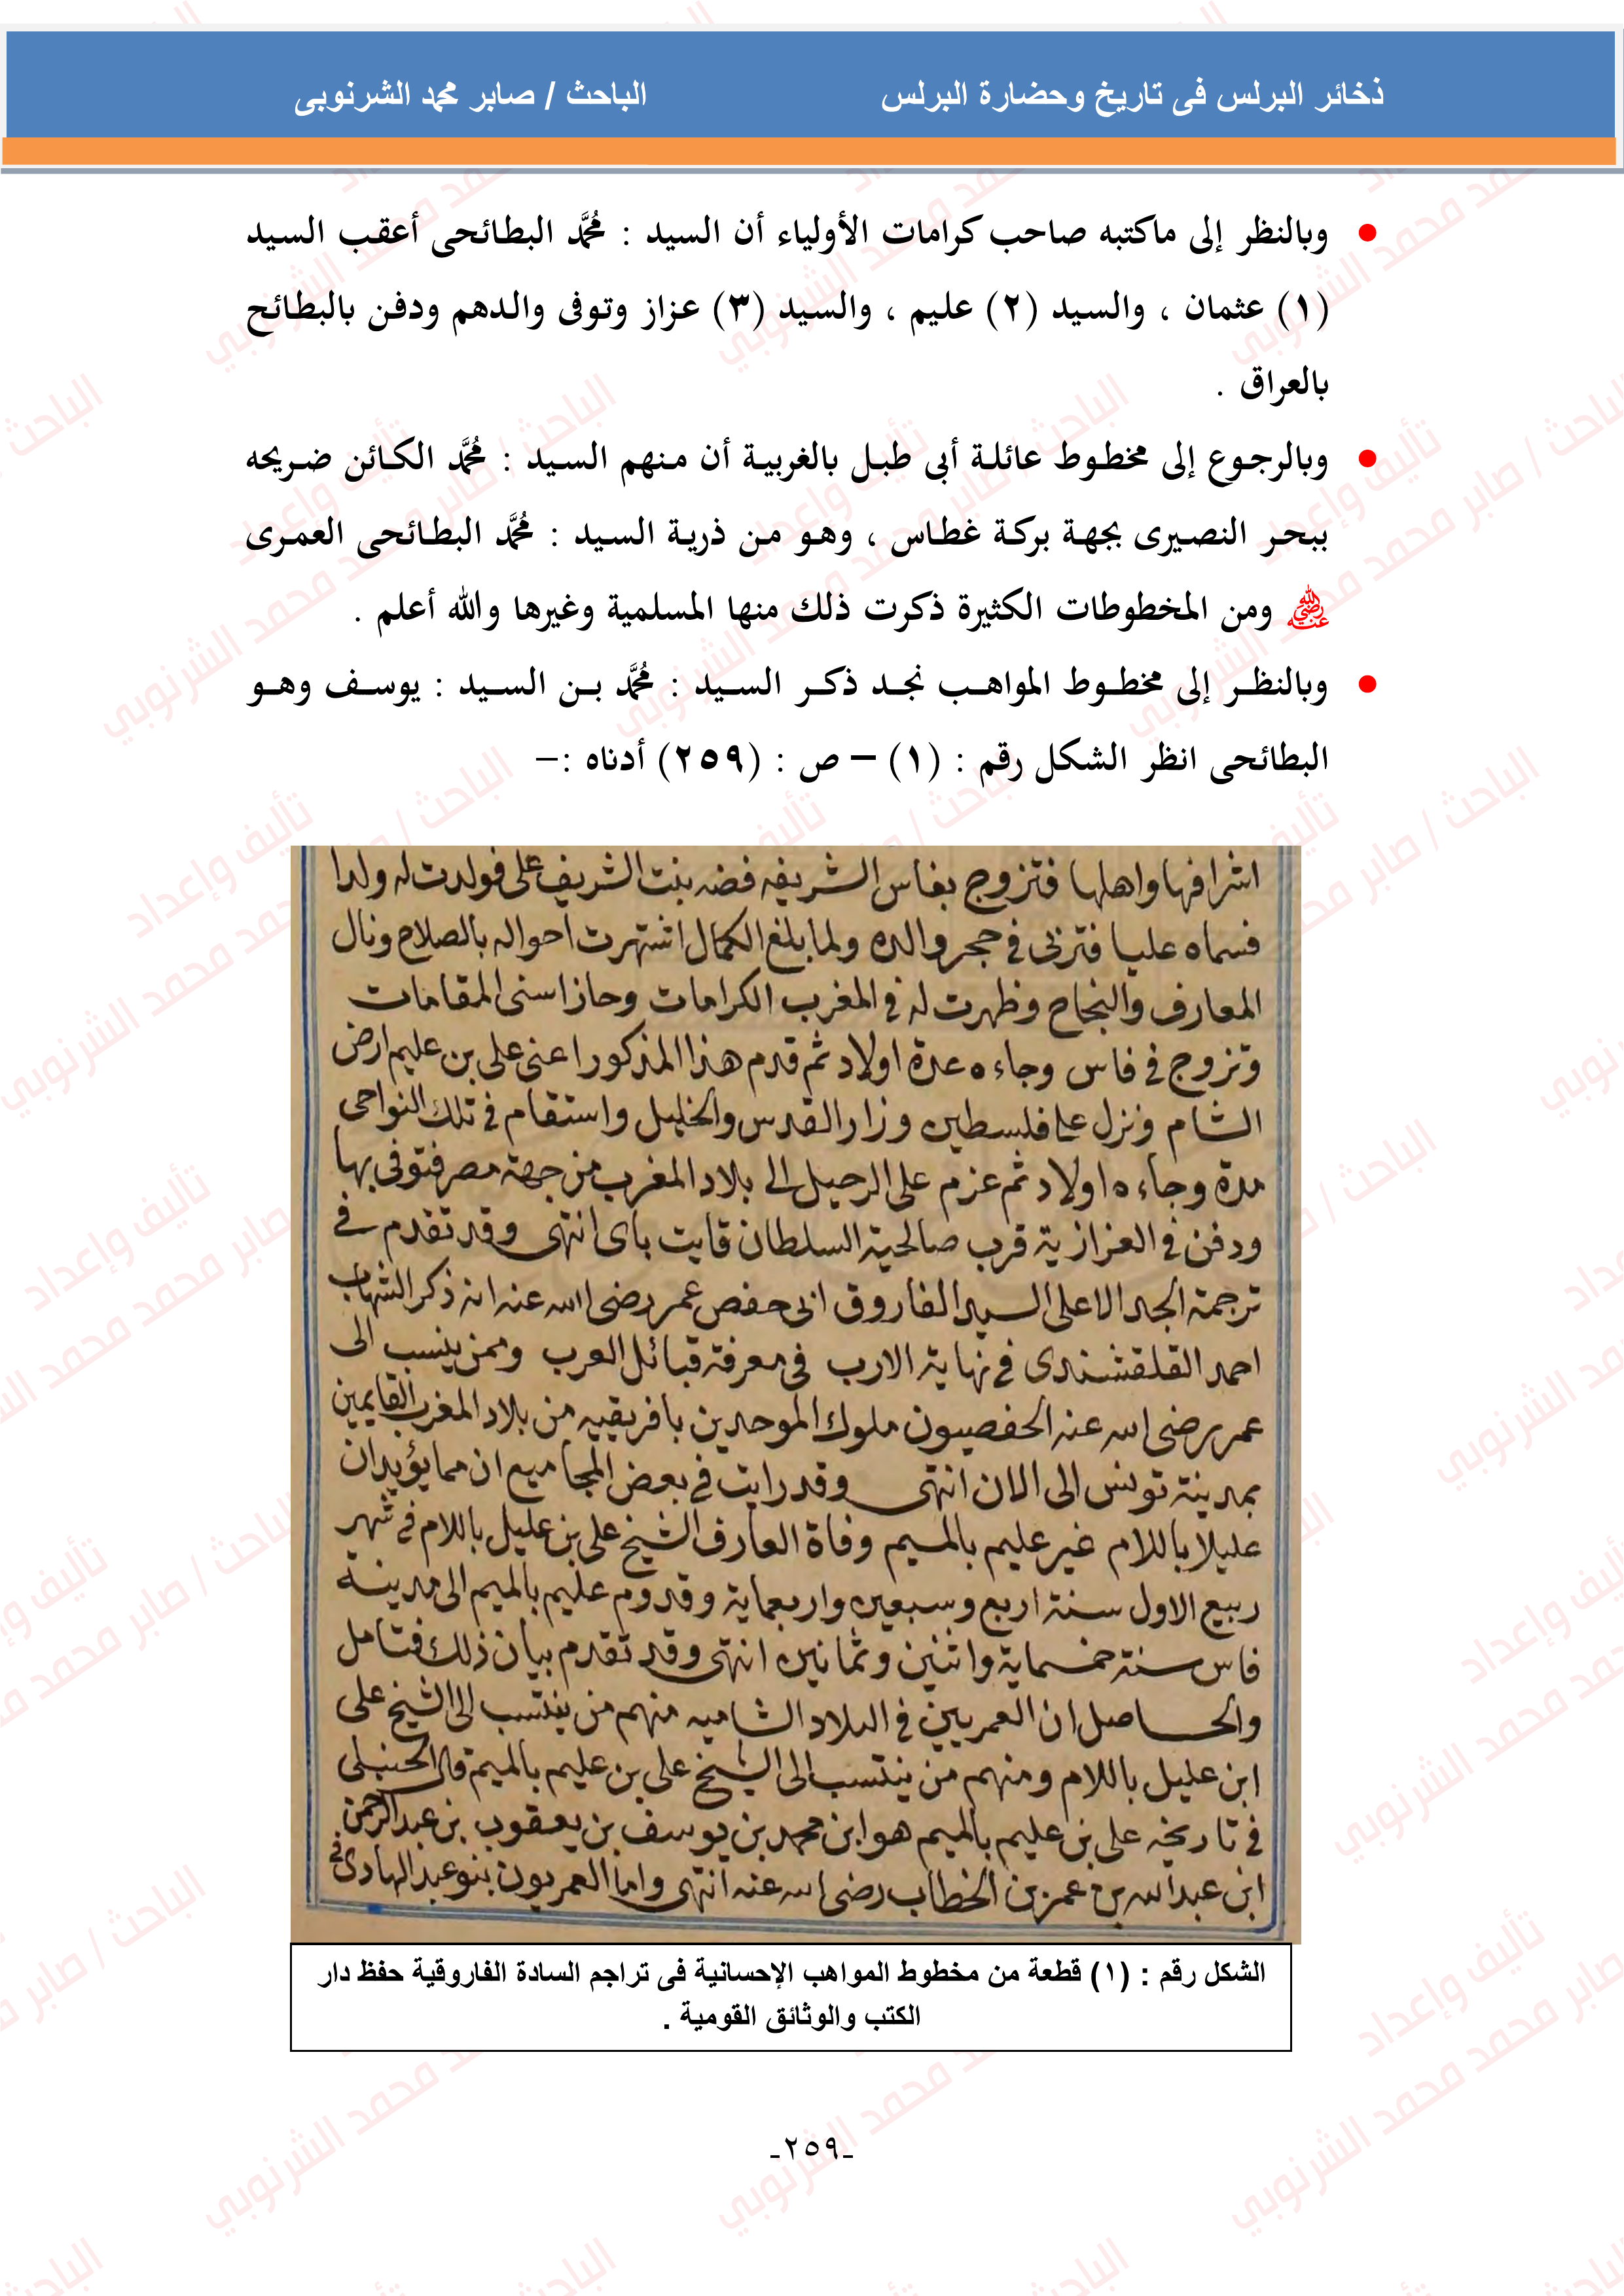 ذخائر البرلس فى تاريخ وحضارة البرلس الباحث / صابر محمد الشرنوبى
• وبالنظر إلى ماكتبه صاحب كرامات الأولياء أن السيد : مُحَمَّد البطائحى أعقب السيد
(١) عثمان ، والسيد (٢) عليم ، والسيد (٣) عزاز وتوفى والدهم ودفن بالبطائح
بالعراق .
• وبالرجوع إلى مخطوط عائلة أبى طبل بالغربية أن منهم السيد : مُحَمَّد الكائن ضريحه
ببحر النصيرى بجهة بركة غطاس ، وهو من ذرية السيد : مُحَمَّد البطائحى العمرى
رضي الله عنه ومن المخطوطات الكثيرة ذكرت ذلك منها المسلمية وغيرها والله أعلم .
• وبالنظر إلى مخطوط المواهب نجد ذكر السيد : مُحَمَّد بن السيد : يوسف وهو
البطائحى انظر الشكل رقم : (١) – ص : (٢٥٩) أدناه :–
اشرافها واهلها فتزوج بفاس الشريفه فضه بنت الشريف على فولدت له ولدا
فسماه عليا فتربى فى حجر والده ولما بلغ الكمال اشتهرت احواله بالصلاح ونال
المعارف والنجاح وظهرت له فى المغرب الكرامات وحاز اسنى المقامات
وتزوج فى فاس وجاءه عدة اولاد ثم قدم هذا المذكور اعنى على بن عليم ارض
الشام ونزل على فلسطين وزار القدس والخليل واستقام فى تلك النواحى
مدة وجاءه اولاد ثم عزم على الرحيل الى بلاد المغرب من جهة مصر فتوفى بها
ودفن فى العزازية قرب صالحية السلطان قايت باى انتهى وقد تقدم فى
ترجمة الجد الاعلى السيد الفاروق ابى حفص عمر رضى الله عنه انه ذكر الشهاب
احمد القلقشندى فى نهاية الارب فى معرفة قبائل العرب وممن ينسب الى
عمر رضى الله عنه الحفصيون ملوك الموحدين بافريقيه من بلاد المغرب القايمين
بمدينة تونس الى الان انتهى وقد رايت فى بعض المجاميع ان مما يؤيد ان
عليلا باللام غير عليم بالميم وفاة العارف الشيخ على بن عليل باللام فى شهر
ربيع الاول سنة اربع وسبعين واربعماية وقدوم عليم بالميم الى مدينة
فاس سنة خمسماية واثنين وثمانين انتهى وقد تقدم بيان ذلك فتامل
والحاصل ان العمريين فى البلاد الشاميه منهم من ينتسب الى الشيخ على
ابن عليل باللام ومنهم من ينتسب الى الشيخ على بن عليم بالميم قال الحنبلى
فى تاريخه على بن عليم بالميم هو ابن محمد بن يوسف بن يعقوب بن عبد الرحمن
ابن عبد الله بن عمر بن الخطاب رضى الله عنه انتهى واما العمريون بنو عبد الهادى فى
الشكل رقم : (١) قطعة من مخطوط المواهب الإحسانية فى تراجم السادة الفاروقية حفظ دار
الكتب والوثائق القومية .
-٢٥٩-
تأليف وإعداد
الباحث / صابر محمد محمد الشرنوبي